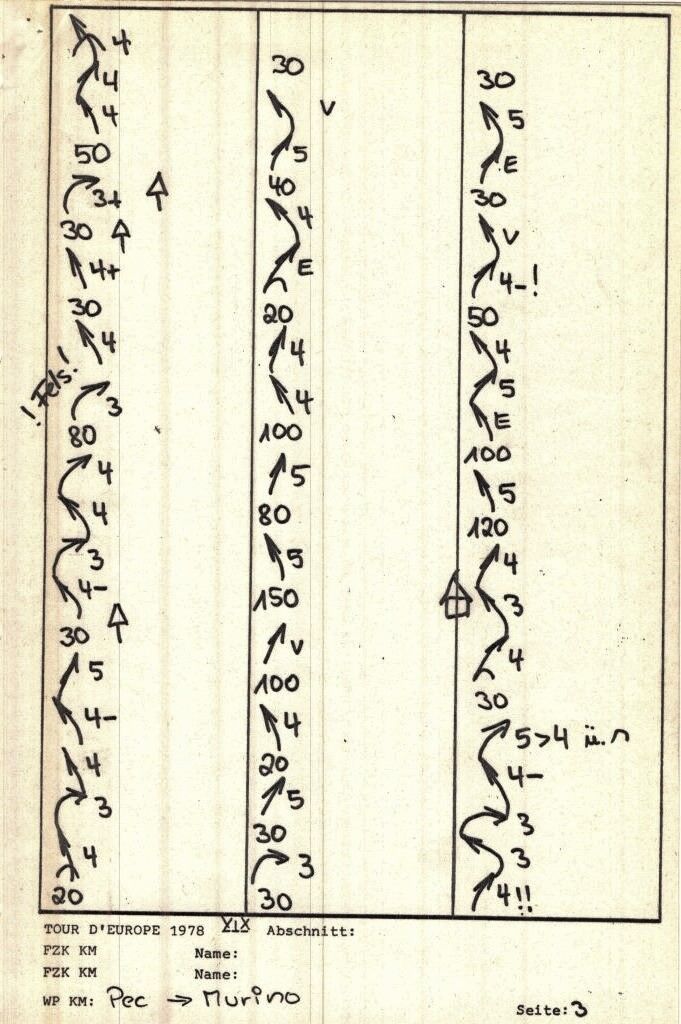 4
4
4
50
3+
30
4+
30
4
! Fels!
3
80
4
4
3
4-
30
5
4-
4
3
4
20
30
V
5
40
4
E
20
4
4
100
5
80
5
150
V
100
4
20
5
30
3
30
30
5
E
30
V
4-!
50
4
5
E
100
5
120
4
3
4
30
5>4 ü.
4-
3
3
4!!
TOUR D'EUROPE 1978 XIX Abschnitt:
FZK KM Name:
FZK KM Name:
WP KM: Pec → Murino
Seite: 3